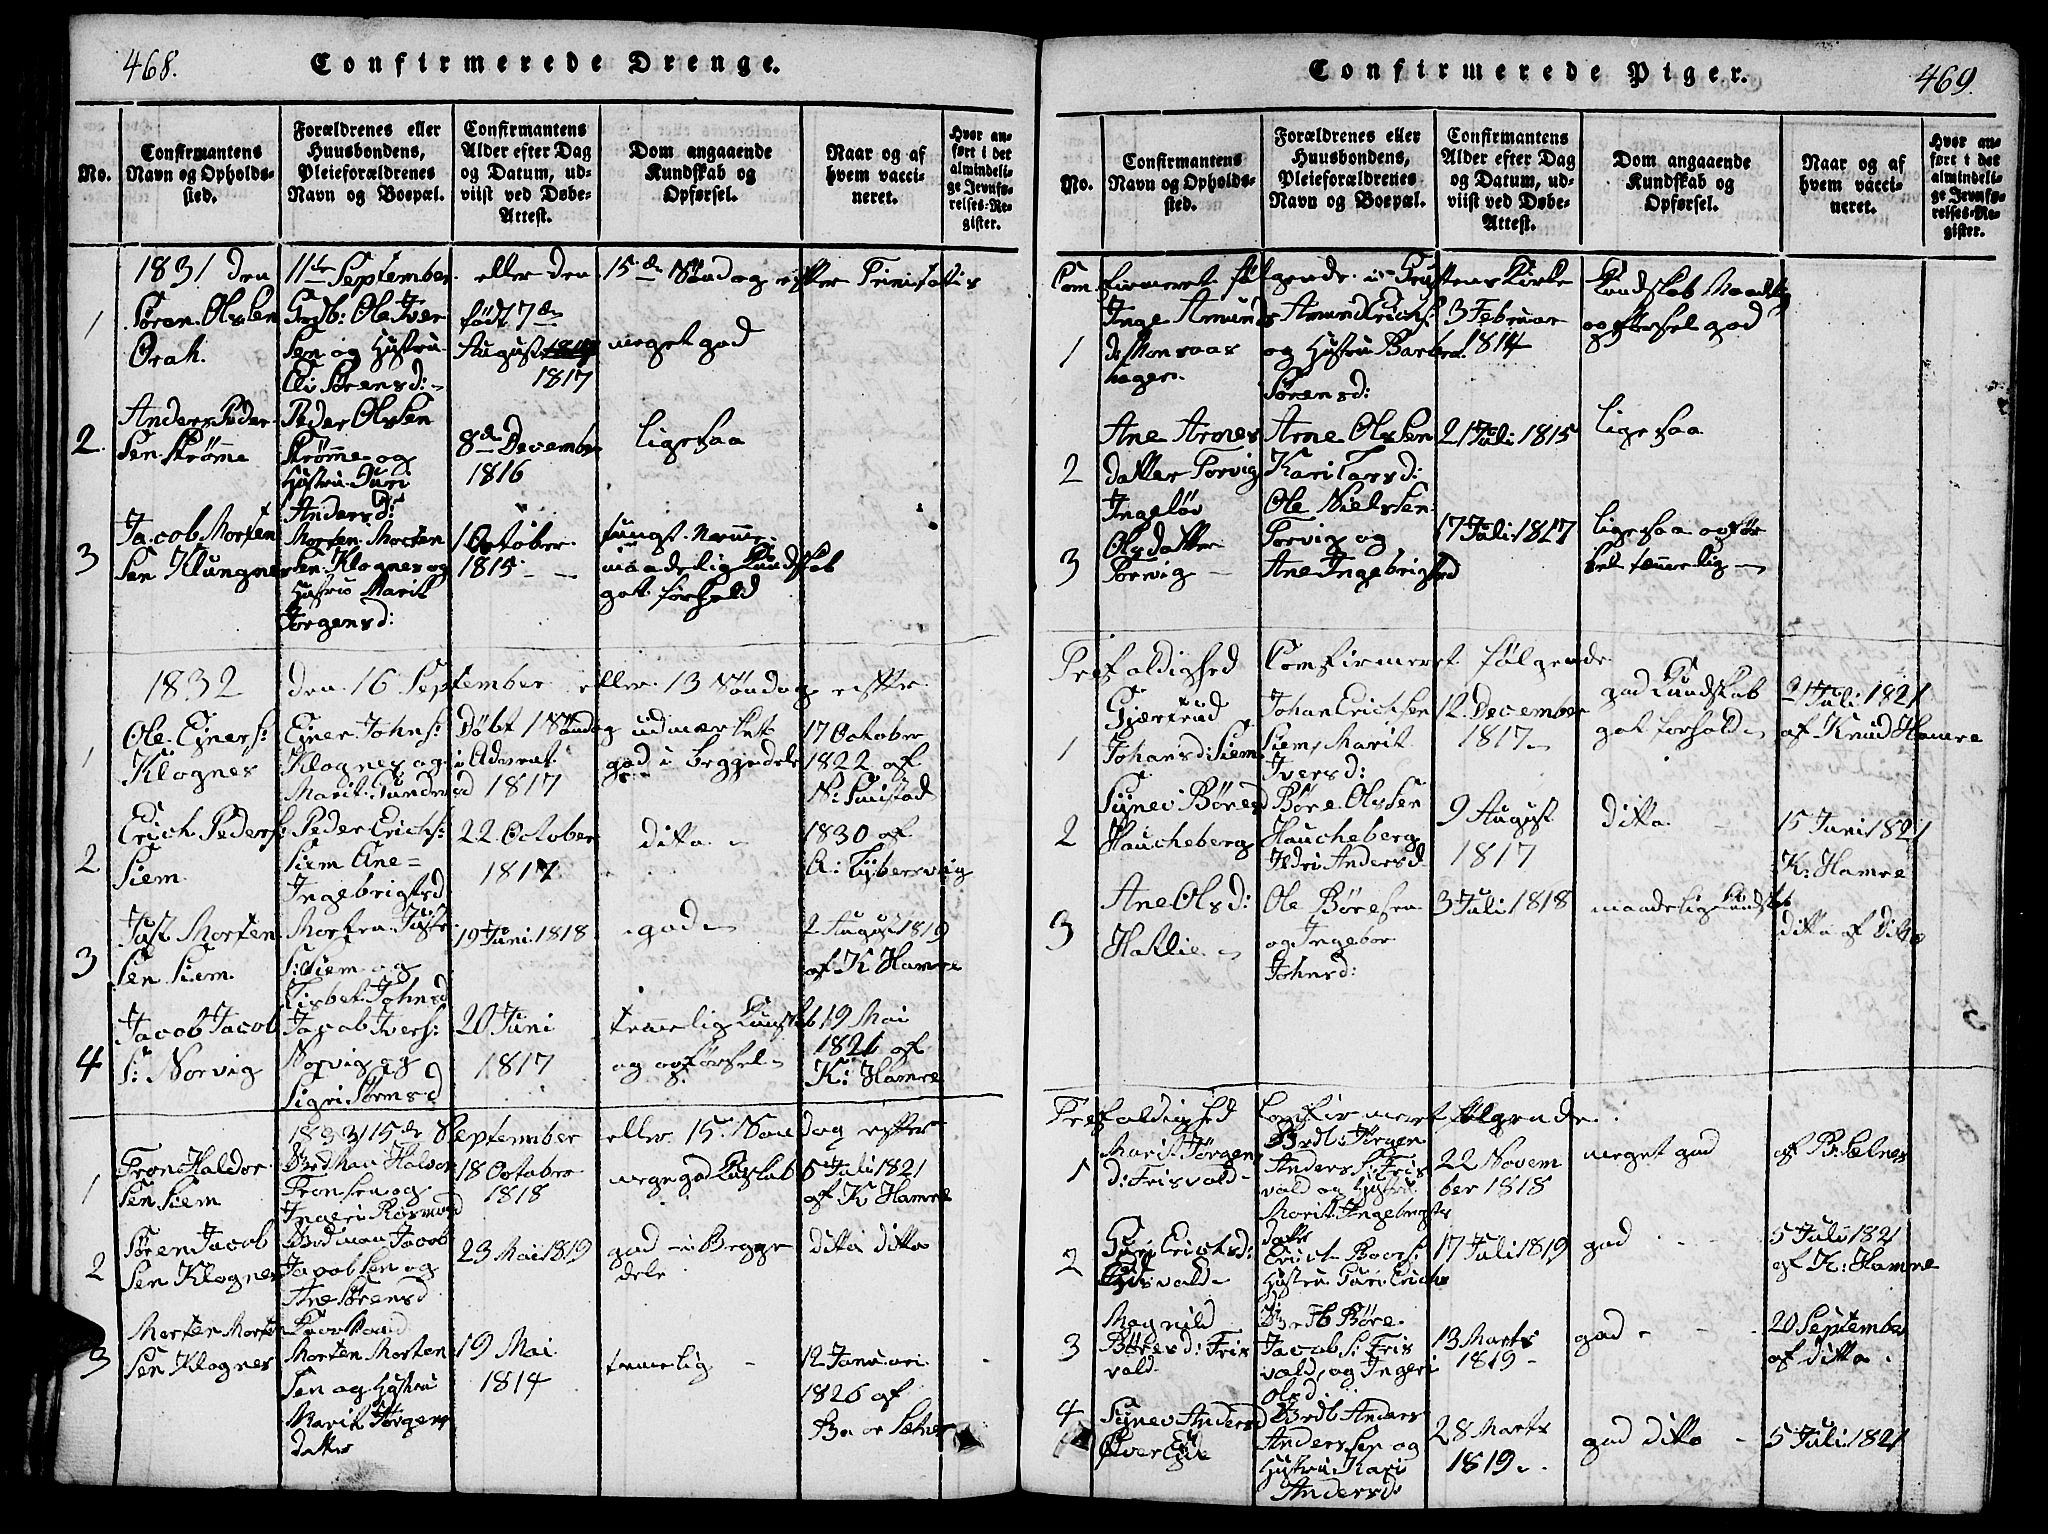 468.
Confirmerede Drenge.
No.
Confirmantens
Navn og Opholds-
sted.
Forældrenes eller
Huusbondens,
Pleieforældrenes
Navn og Boepæl.
Confirmantens
Alder efter Dag
og Datum, ud-
viist ved Døbe-
Attest.
Dom angaaende
Kundskab og
Opførsel.
Naar og af
hvem vacci-
neret.
Hvor an-
ført i det
almindeli-
ge Jevnfø-
relses-Re-
gister.
1831 den 11te September eller den 15de Søndag efter Trinitatis
1
Søren Olssen
Orah.
Ole Iver
Sen og Hustru
Eli Sørensd:
født 7de
August
1817
meget god
2.
Anders Peder
Sen Strømme
Peder Olssen
Strømme og
Hustru Guri
Andersd:
8de December
1816
ligesaa
3
Jacob Morten
Sen Klungnes
Morten Morten
Sen Klognes og
Hustru Marit
Jørgensd:
1 October
1815
maadelig Kundskab
got forhold
1832 den 16 September eller 13 Søndag efter
1
Ole Ejners:
Klognes
Ejner Johns:
Klognes og
Marit Gunders
d
Døbt 1 Søndag
i Advent
1817
udmærket
god i beggedele
17 October
1822 af
N: Smistad
2
Erich Peders:
Siem
Peder Erichs:
Siem Ane
Ingebrigtsd
22 October
1817
ditto
1830 af
A: Tybersvig
3
Just Morten
Sen Siem.
Morten Juste
S: Siem og
Lisbet Johnsd
19 Juni 1818
god
2 August 1819
af K Hamre
4
Jacob Jacob
S: Norvig
Jacob Ivers:
Norvig og
Sigri Sørensd
20 Juni
1817
temmelig Kunskab
og opførsel
19 Mai
1821 af
K: Hamre
1833 15de September eller 15 Søndag efter
1
Tron Haldor
Sen Siem
Halvor
Tronsen og
Ingeri Rasmusd
18 October
1818
meget god Kuskab
5 Juli 1821
af K Hamre
2
Søren Jacob
Sen Klognes
Jacob
Jacobsen og
Ane Sørensd
23 Mai 1819
god i Begge
dele
ditto ditto
3
Morten Morten
Sen Klognes
Morten Morten
Sen og Hustru
Marit Jørgens
datter
19 Mai
1814
temmelig
12 Januari
1826 af
469.
Confirmerede Piger.
No.
Confirmantens
Navn og Opholds-
sted.
Forældrenes eller
Huusbondens,
Pleieforældrenes
Navn og Boepæl.
Confirmantens
Alder efter Dag
og Datum, ud-
viist ved Døbe-
Attest.
Dom angaaende
Kundskab og
Opførsel.
Naar og af
hvem vacci-
neret.
Hvor an-
ført i det
almindeli-
ge Jevnfø-
relses-Re-
gister.
Comfirmeret følgende i Kirke
1
Inge Amund
d: Monsaas
hagen
Amund Erichs:
og Hustru Barbra
Sørensd:
3 Februar
1814
Kundskab Maadelig
opførsel god
2
Ane Arnes
datter Torvig
Arne Olssen
Kari Larsd:
21 Juli 1815
ligesaa
3
Ingeløv
Olsdatter
Torvig
Ole Nielssen
Torvig og
Ane Ingebrigtsd
17 Juli 1817
ligesaa opfør
sel temmelig
Trefoldighed Comfirmeret følgende
1
Gjærtrud
Johansd: Siem
Johan Erichsen
Siem, Marit
Iversd:
12 December
1817
god Kundskab
got forhold
21 Juli 1821
af Knud Hamre
2
Synev Børesd
Haucheberg
Børe Olssen
Haucheberg
Ildri Andersd
9 August
1817
ditto
15 Juni 1821
K: Hamre
3
Ane Olsd:
Hatlie
Ole Børesen
og Ingebor
Johnsd:
3 Juli 1818
maadelig Kundskab
ditto af ditto
Trefoldighed Comfirmeret følgende
1
Marit Jørgens
d: Frisvold
Jørgen
Anders S: Fris
vold og Hustru
Marit Ingebrigts
datter
22 Novem
ber 1818
meget god
af B: Sætnes
2
Guri Erichsd:
Frisvold
Erich Boers:
Hustru Guri Erichs
17 Juli 1819
god
5 Juli 1821
af K: Hamre
3
Magnild
Børesd: Fris
vold
Børe
Jacob S: Fris
vold, og Ingeri
Olsd
13 Marts
1819
god
20 September
af ditto
4
Synev Andersd
Øver Eide
Anders
Anderssen og
Hustru Kari
Andersd:
28 Marts
1819
god ditto
5 Juli 1821